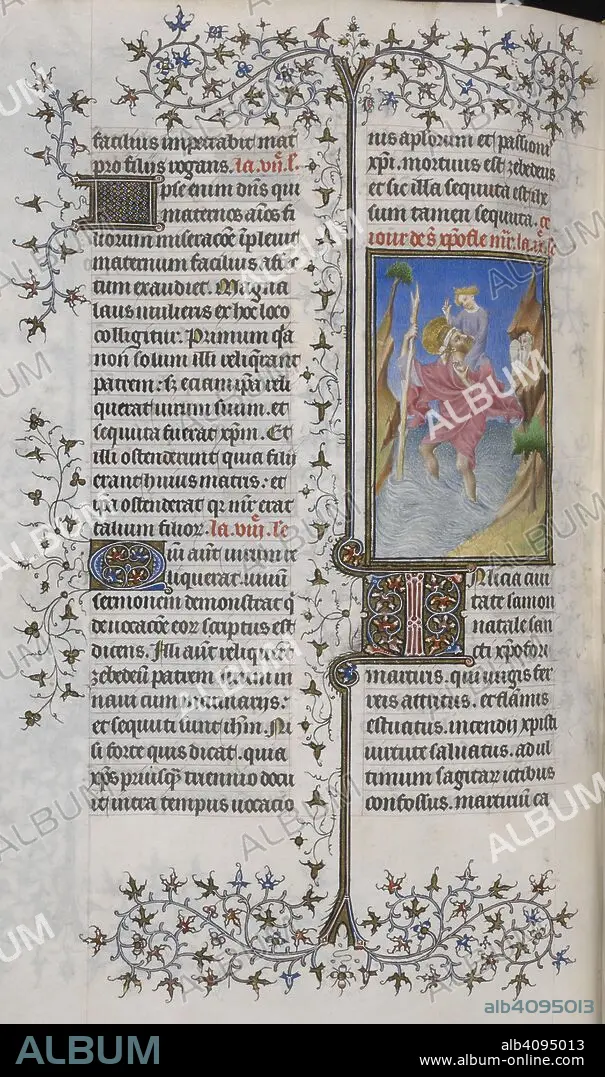 facilius impetrabit mat
pro filiis rogans. la. viij. l.
Ipse enim dns qui
maternos aũos fi
liorum miseracõe ipleuit
maternum facilius affec
tum exaudiet. Magna
laus mulieris ex hoc loco
colligitur. Primum qa
non solum illi reliqrant
patrem: sz eciam ipa reli
querat uirum suum. et
sequuta fuerat xpm. Et
illi ostenderunt quia filij
erant huius matris: et
ipa ostenderat qr mr erat
talium filior. la. viiij. le
Cum aut uirum re
liquerat. unum
sermonem demonstrat q
de uocacõe eor scriptus est
dicens. Illi aut relictis
zebedeum patrem suum in
naui cum mercenariis:
et sequuti sunt ihm. Ni
si forte quis dicat. quia
xps priusq triennio docu
it intra tempus uocacio
nis aplorum et passioni
xpi. mortuus est zebedeus
et sic illa sequuta est ihe
sum tamen sequuta.
iour de s. xpofle mr. la. le
IN licia ciui
tate samon
natale san
cti xpofori
martiris. qui uirgis fer
reis attritus. et flamis
estuatis. incendij xpisti
uirtute saluatus. ad ul
timum sagitar ictibus
confossus. martirium ca
ALBUM
alb4095013
ALBUM
alb4095013
www.album-online.com